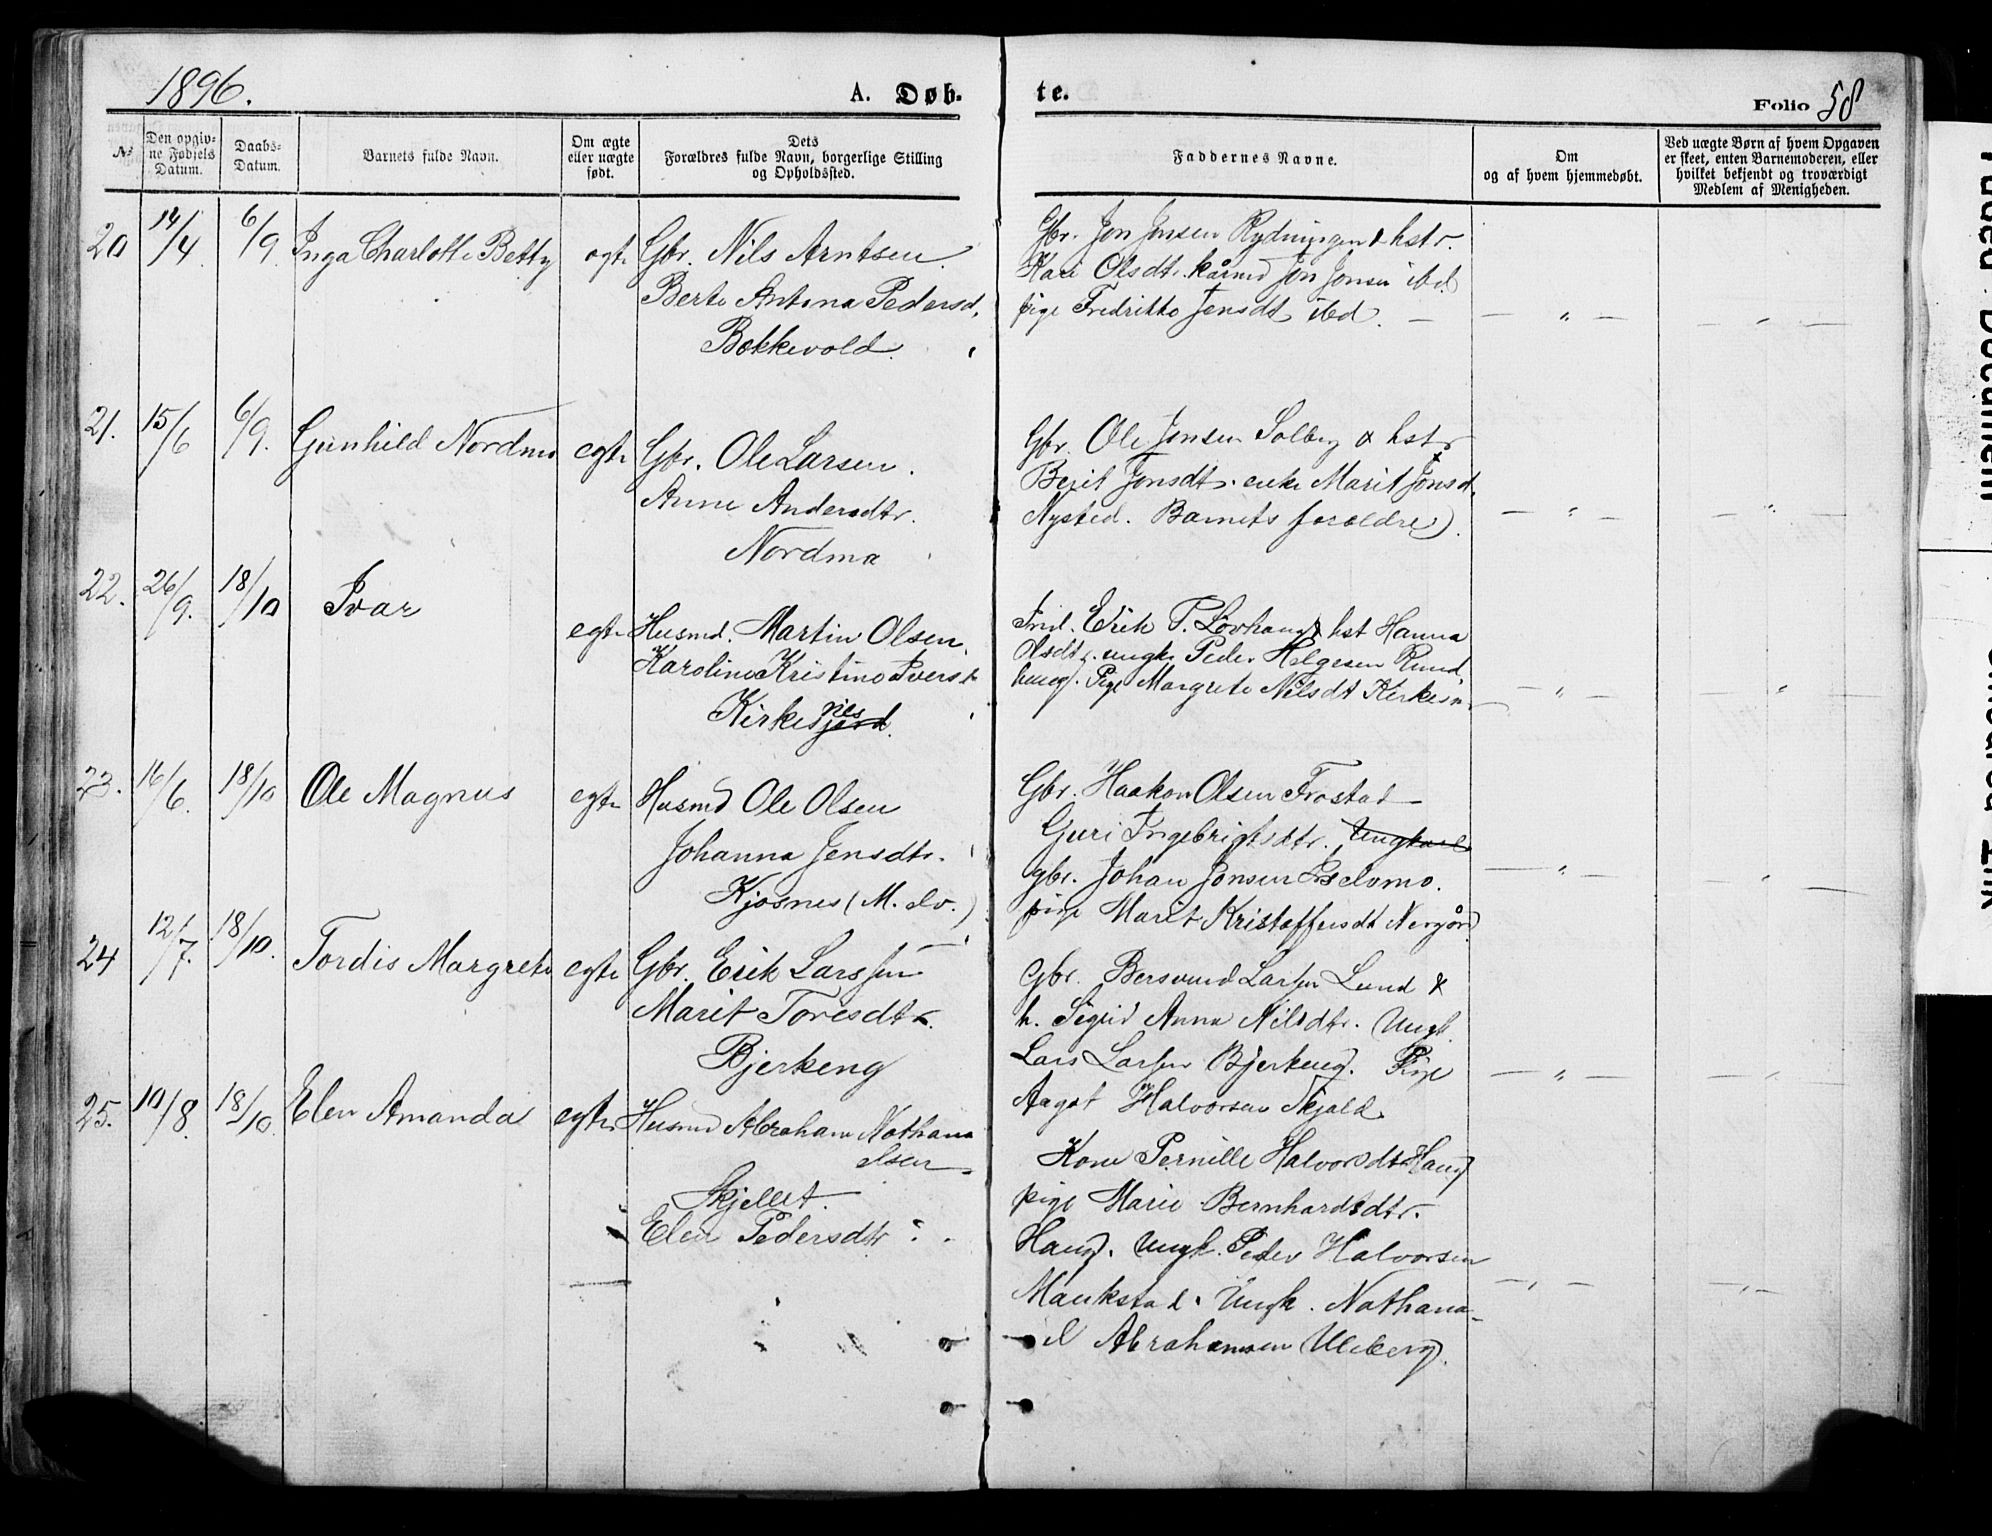 1896.
A. Døb-
te.
Folio 58
№
Den opgiv-
ne Fødsels
Datum.
Daabs-
Datum.
Barnets fulde Navn.
Om ægte
eller uægte
født.
Dets
Forældres fulde Navn, borgerlige Stilling
og Opholdssted.
Faddernes Navne.
Om
og af hvem hjemmedøbt.
Ved uægte Børn af hvem Opgaven
er skeet, enten Barnemoderen, eller
hvilket bekjendt og troværdigt
Medlem af Menigheden.
20 14/4 6/9 Inga Charlotte Betty egte
Gbr. Nils Arntsen.
Berte Antona Pedersd.
Bakkevold.
Gbr. Jon Jonsen Rydningen & hstr.
Kari Olsdtr. kårmd Jon Jonsen ibd
pige Fredrikke Jensdt ibd. —
— " — — " —
21. 15/6 6/9. Gunhild Nordmo egte
Gbr. Ole Larsen.
Anne Andersdtr.
Nordmo
Gbr. Ole Jonsen Solberg & hstr
Berit Jonsdtr. enke Marit Jonsd.
Nysted. Barnets forældre).
— " — — " —
22. 26/9. 18/10 Ivar egte
Husmd. Martin Olsen.
Karoline Kristine Iversd
Kirkesnes
Erik P. Løvhaug & hst Hanna
Olsdtr. ungk Peder Helgesen Rund
haug. Pige Margrete Nilsdt Kirkesn
— " — "
23. 16/6. 18/10 Ole Magnus egte
Husmd Ole Olsen
Johanna Jensdtr.
Kjosnes (M. elv.)
Gbr. Haakon Olsen Frostad —
Guri Ingebrigtsdtr. Ungkarl
gbr. Johan Jonsen
pige Marit Kristoffersdt Nergård
— " — " —
24 12/7. 18/10. Tordis Margrete egte
Gbr. Erik Larssen
Marit Toresdtr.
Bjerkeng
Gbr. Bersvend Larsen Lund &
h. Sigrid Anna Nilsdtr. Ungk.
Lars Larsen Bjerkeng. Pige
Aagot Halvorsen Skjold.
— " — — " —
25. 10/8. 18/10. Elen Amanda egte
Husmd Abraham Nathana
elsen
Skjellet.
Elen Pedersdtr
Kone Pernille Halvorsdt Haug
pige Marie Bernhardsdtr.
Haug. Ungk. Peder Halvorsen
Maukstad. Ungk. Nathana-
el Abrahamsen Uleberg.
— " — — " —